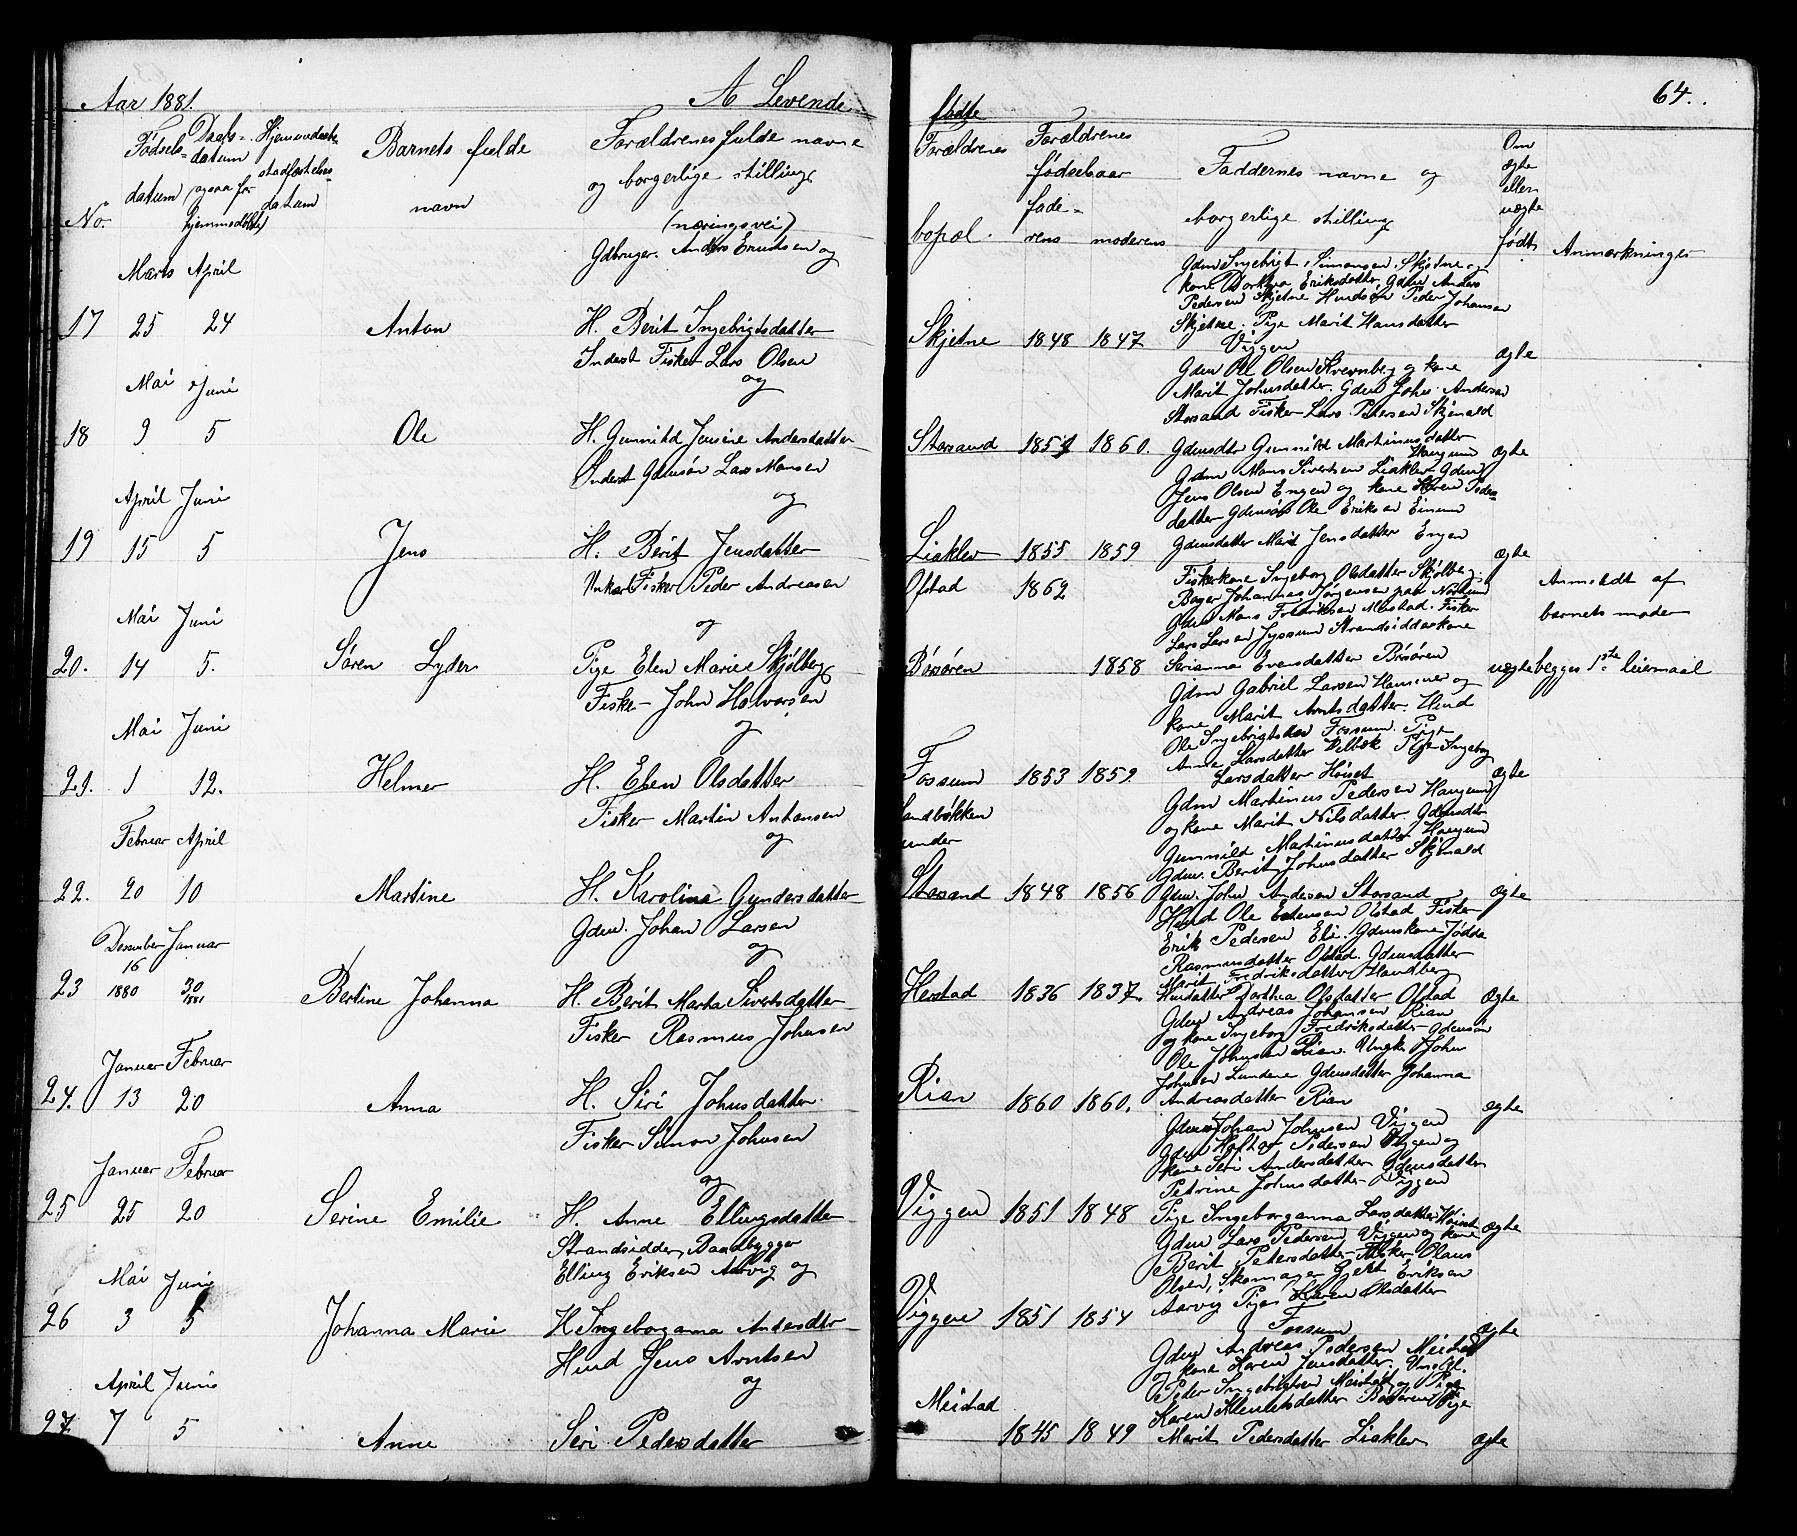 Aar 1881.
A Levende
No.
Fødsels-
datum
Daabs-
datum
(ogsaa for
hjemmedøbte)
Hjemmedaabs-
stadfæstelses-
datum
Barnets fulde
navn
Forældrenes fulde navne
og borgerlige stilling
(næringsvei)
Marts April
17 25 24 Anton
Gdbruger. Anders Knudsen og
H. Berit Ingebrigtsdatter
Mai Juni
18 9 5 Ole
Inderst Fisker Lars Olsen
og
H. Gunnild Jensine Andersdatter
April Juni
19 15 5 Jens
Inderst Gdmsøn Lars Monsen
og
H. Berit Jensdatter
Mai Juni
20. 14 5. Søren Lyder
Unkarl Fisker Peder Andreasen
og
Pige Elen Marie Skjølberg
Mai Juni
21. 1 12. Helmer
Fisker John Halvorsen
og
H. Elen Olsdatter
Februar April
22. 20 10 Martine
Fisker Martin Antonsen
og
H. Karolina Gundersdatter
Desember Januar
16
23 1880 30 1881 Bertine Johanna
Gdm. Johan Larsen
og
H. Berit Marta Sivertsdatter
Januar Februar
24. 13 20 Anna
Fisker Rasmus Johnsen
H. Siri Johnsdatter
Januar Februar
25 25 20 Serine Emilie
Fisker Simon Johnsen
og
H. Anne Ellingsdatter
Mai Juni
26 3 5 Johanna Marie
Strandsidder, Baadbygger
Elling Eriksen Aarvig og
H. Ingeboranna Andersdtr
April Juni
27. 7 5 Anne
Hmd Jens Arntsen
og
Seri Pedersdatter
64.
fødte
Forældrenes
bopæl.
Forældrenes
fødselsaar
fade-
rens moderens
Faddernes navne og
borgerlige stilling
Om
ægte
eller
uægte
født.
Anmærkninger
Gdm Ingebrigt Simonsen Skjetne og
kone Dorthea Eriksdatter, Gdm Anders
Pedersen Skjetne Hmdsøn Peder Johansen
Skjetne. Pige Marit Hansdatter
Viggen
Skjetne 1848 1847 ægte
Gdm Ole Olsen Kvernberg og kone
Marit Johnsdatter. Gdm John Andersen
Storsand Fisker Lars Petersen Skjenald
Gdmsdtr Gunnild Martinusdatter
Haugum
Storsand 1857 1860. ægte
Gdm Mons Sivertsen Liaklev Gdm
Jens Olsen Engen og kone Karen Peders-
datter Gdmsøn Ole Eriksen Einum
Gdmsdatter Marit Jensdatter Engen
Liaklev 1855 1859 ægte
Ofstad 1862
Fiskerkone Ingeborg Olsdatter Skjølberg.
Bager Johannes Jørgensen paa
Gdm Mons Fredriksen Meistad. Fisker
Lars Larsen Jyssum Strandsidderkone
Serianna Evensdatter Børsøren
Børsøren 1858 uægte
Anmeldt af
barnets moder
begges 1ste leiermaal
Gdm Gabriel Larsen Hammer og
kone Marit Arntsdatter. Hmd
Ole Ingebrigtsen Fossum. Pige
Anne Larsdatter Pige Ingeborg
Larsdatter Høiset
Fossum 1853 1859 ægte
Sandbækken
under
Storsand 1848 1856 ægte
Gdm Martinus Pedersen Haugum
og kone Marit Nilsdatter. Gdmsdtr
Gunnild Martinusdatter Haugum
Gdm. Berit Johnsdatter Skjenald
Gdm. John Andersen Storsand
Hmd Ole Estensen Ofstad Fisker
Erik Pedersen Eli. Gdmskone Jødda
Rasmusdatter Ofstad. Gdmsdatter
Marit Fredriksdatter Handberg
Hmdatter Dorthea Olsdatter Ofstad
Herstad 1836 1837. ægte
Gdm Andreas Johansen Rian
og kone Ingeborg Fredriksdatter Gdmsøn
Ole Johnsen Rian. Ungk. John
Johnsen Lundene Gdmsdatter Johanna
Andreasdatter Rian
Rian 1860 1860. ægte
Gdm Johan Johnsen Viggen
Gdm Haftor Pedersen Viggen og
kone Seri Andersdatter Gdmsdatter
Petrine Johnsdatter Viggen
Pige Ingeboranna Larsdatter Høiset
Viggen 1851 1848 ægte
Gdm Lars Pedersen Viggen og kone
Berit Petersdatter Fisker Olaus
Olsen, Skomager Gjert Eriksen
Aarvig Pige Karen Olsdatter
Fossum
Viggen 1851 1854 ægte
Gdm Andreas Pedersen Meistad
og kone Karen Jensdatter. Ungkl.
Peder Ingebrigtsen Meistad og Pige
Karen Klemetsdatter Børsøren Pige
Marit Pedersdatter Liaklev
Meistad 1845 1849 ægte